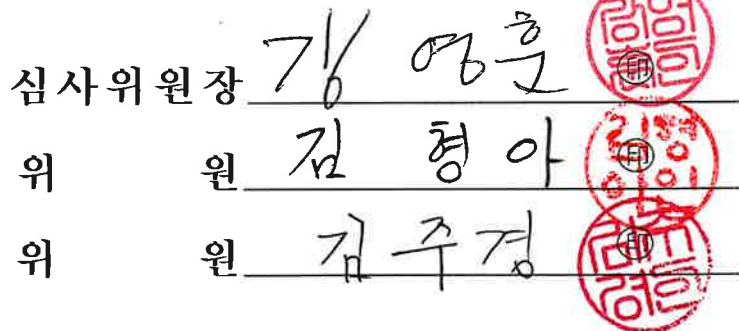 심사위원장 강 영훈 印
위 원 김 형아 印
위 원 김주경 印